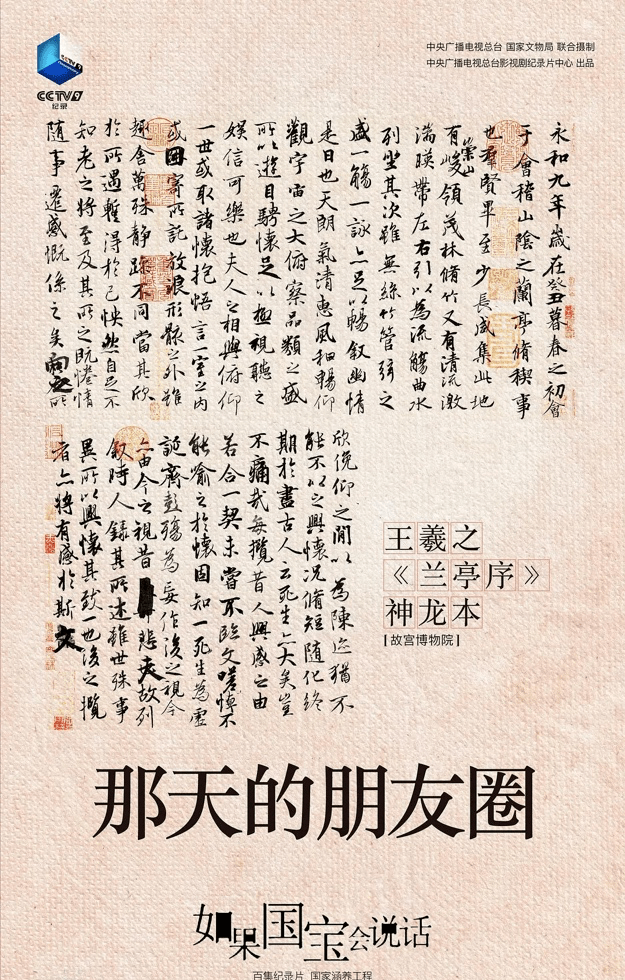 CCTV9
纪录
中央广播电视总台 国家文物局 联合摄制
中央广播电视总台影视剧纪录片中心 出品
永和九年歲在癸丑暮春之初會
于會稽山陰之蘭亭脩稧事
也羣賢畢至少長咸集此地
有崇山峻領茂林脩竹又有清流激
湍暎帶左右引以為流觴曲水
列坐其次雖無絲竹管弦之
盛一觴一詠亦足以暢敘幽情
是日也天朗氣清惠風和暢仰
觀宇宙之大俯察品類之盛
所以遊目騁懷足以極視聽之
娛信可樂也夫人之相與俯仰
一世或取諸懷抱悟言一室之內
或因寄所託放浪形骸之外雖
趣舍萬殊靜躁不同當其欣
於所遇蹔得於己怏然自足不
知老之將至及其所之既惓情
隨事遷感慨係之矣向之所
欣俛仰之閒以為陳迹猶不
能不以之興懷況脩短隨化終
期於盡古人云死生亦大矣豈
不痛哉每攬昔人興感之由
若合一契未嘗不臨文嗟悼不
能喻之於懷固知一死生為虛
誕齊彭殤為妄作後之視今
亦由今之視昔悲夫故列
敘時人錄其所述雖世殊事
異所以興懷其致一也後之攬
者亦將有感於斯文
王羲之
《兰亭序》
神龙本
故宫博物院
那天的朋友圈
如果国宝会说话
百集纪录片 国家涵养工程